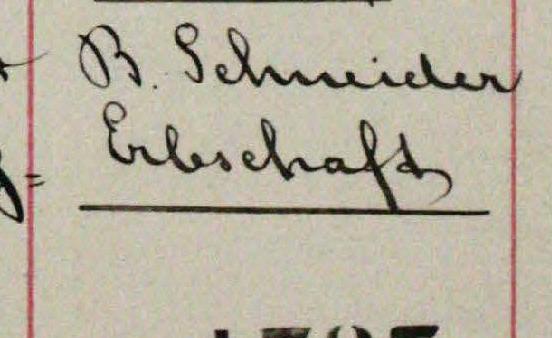 B. Schneider
Erbschaft